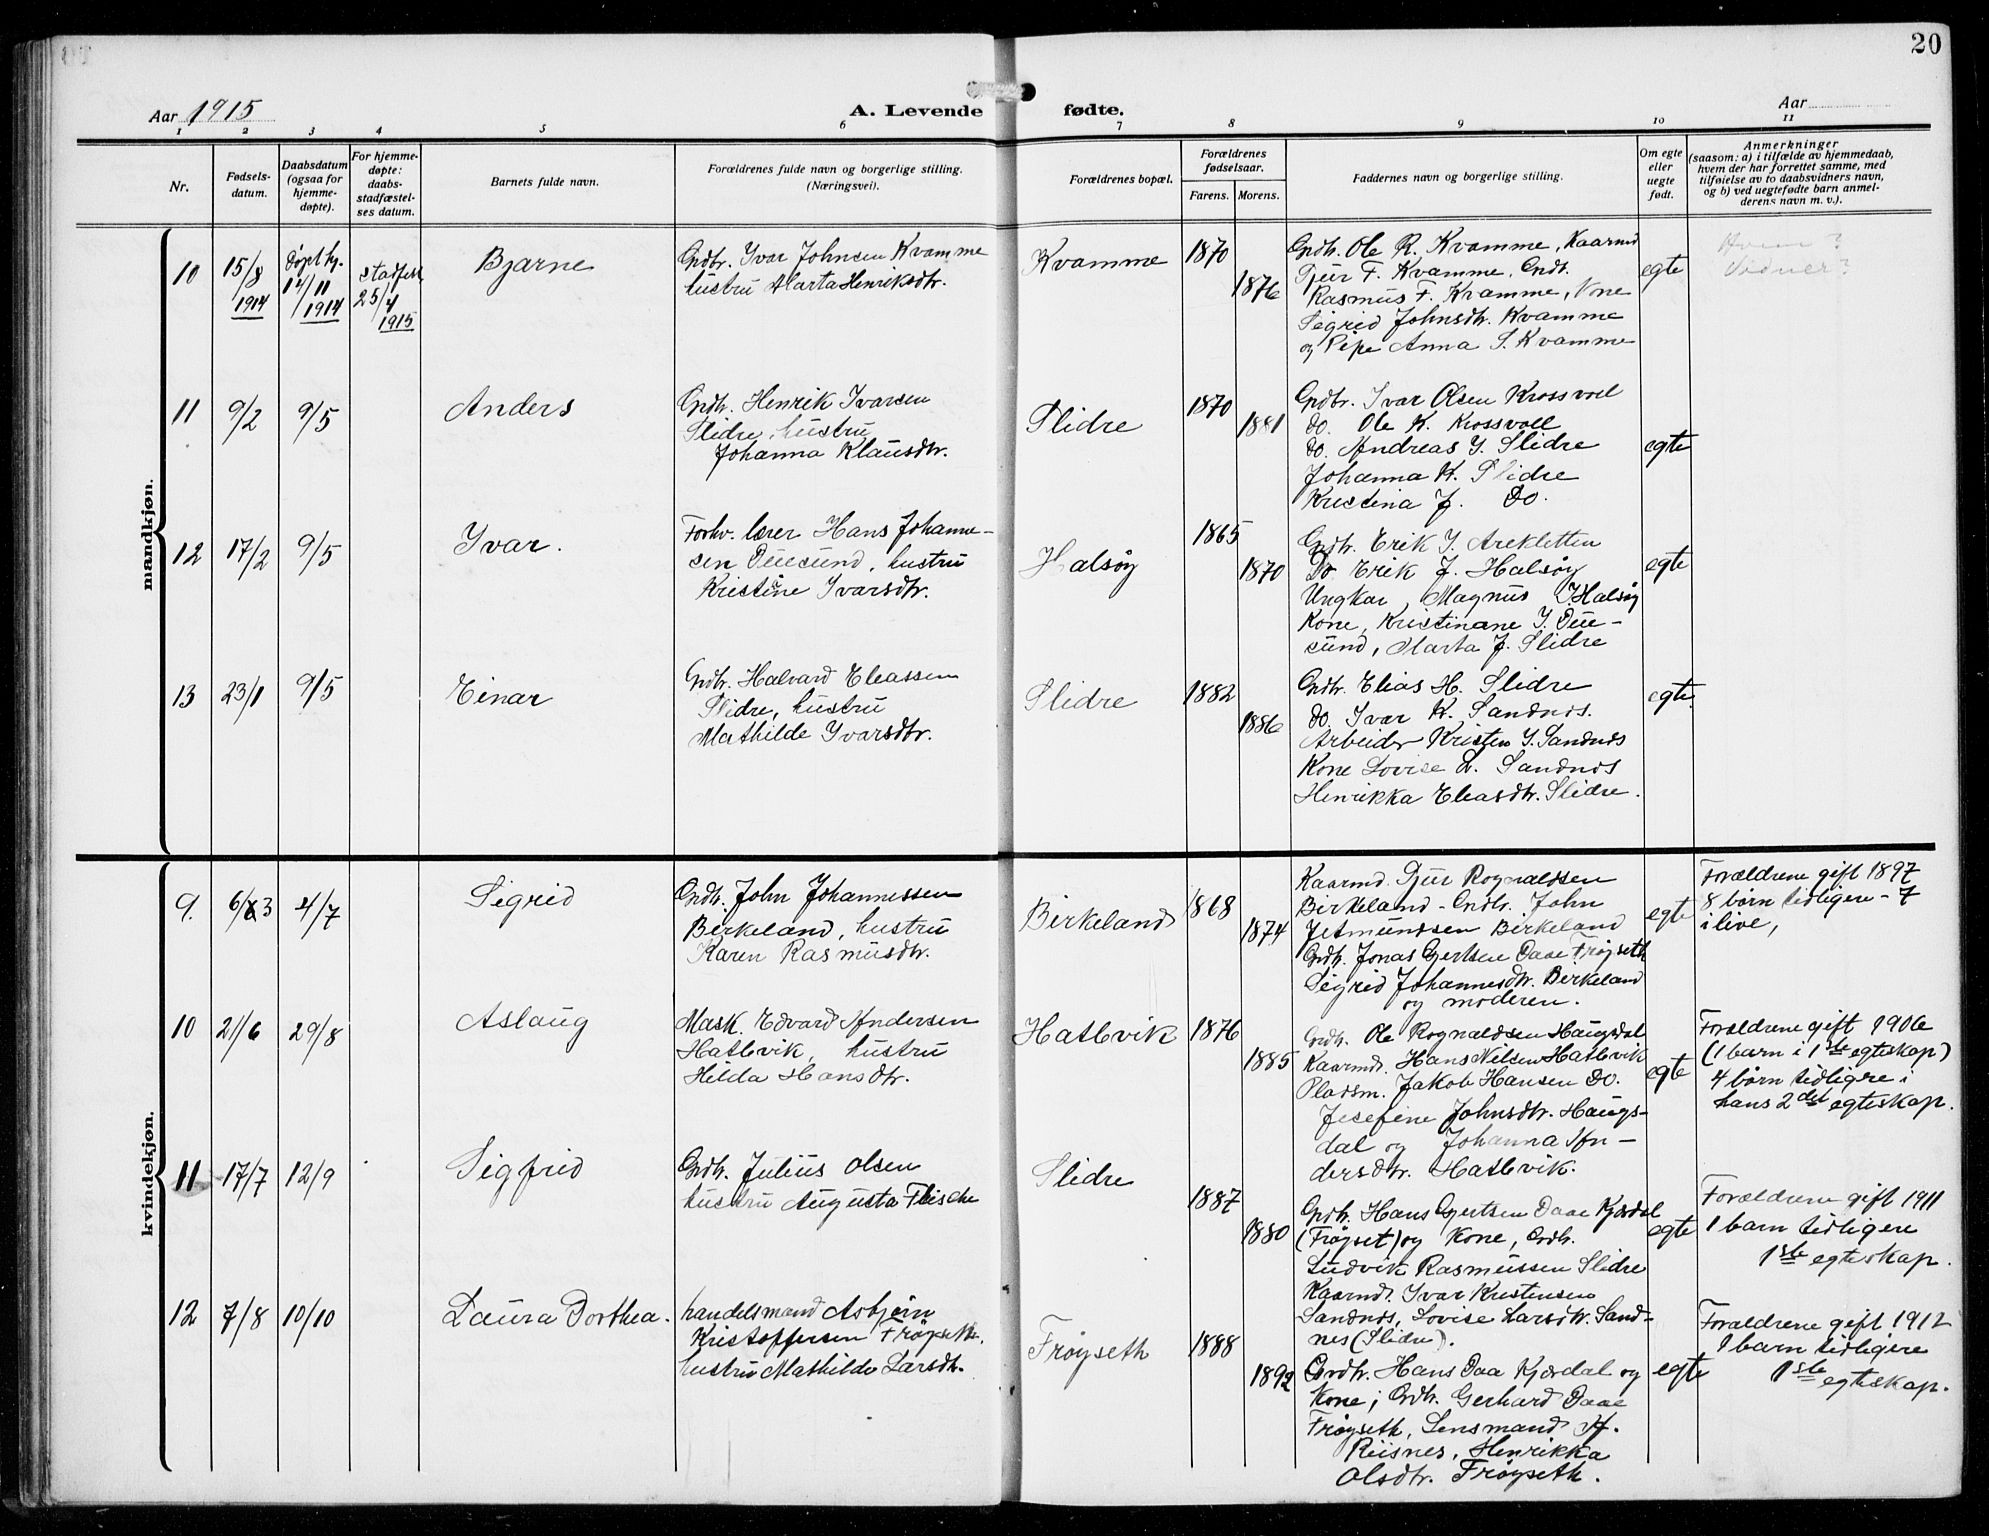 20
Aar 1915
A. Levende fødte.
Aar
1 2 3 4 5 6 7 8 9 10 11
Nr.
Fødsels-
datum.
Daabsdatum
(ogsaa for
hjemme-
døpte).
For hjemme-
døpte:
daabs-
stadfæstel-
ses datum.
Barnets fulde navn.
Forældrenes fulde navn og borgerlige stilling.
(Næringsvei).
Forældrenes bopæl.
Forældrenes
fødselsaar.
Farens. Morens.
Faddernes navn og borgerlige stilling.
Om egte
eller
uegte
født.
Anmerkninger
(saasom: a) i tilfælde av hjemmedaab,
hvem der har forrettet samme, med
tilføielse av to daabsvidners navn,
og b) ved uegtefødte barn anmel-
derens navn m. v.).
mandkjøn.
10
15/8
1914
Døpt hj.
14/11
1914
stadfest
25/4
1915
Bjarne
Grdbr. Ivar Johnsen Kvamme
hustru Marta Henriksdtr.
Kvamme
1870
1876
Grdbr. Ole R. Kvamme, Kaarmd
Gjur F. Kvamme, Grdbr.
Rasmus F. Kvamme, Kone
Sigrid Johnsdtr. Kvamme
og Pike Anna S. Kvamme
egte
Hvem?
Vidner?
11
9/2
9/5
Anders
Grdbr. Henrik Ivarsen
Slidre, hustru
Johanna Klausdtr.
Slidre
1870
1881
Grdbr. Ivar Olsen Krossvoll
do. Ole K. Krossvoll
do. Andreas I. Slidre
Johanna K. Slidre
Kristina J. Do.
egte
12
17/2
9/5
Ivar.
Forhv. lærer Hans Johanne-
sen Duesund, hustru
Kristine Ivarsdtr.
Halsøy
1865
1870
Grdbr. Erik I. Arekletten
Do Erik J. Halsøy
Ungkar, Magnus I. Halsøy
Kone, Kristinane I. Due-
sund, Marta J. Slidre
egte
13
23/1
9/5
Einar
Grdbr. Halvard Eliassen
Slidre, hustru
Mathilde Ivarsdtr.
Slidre
1882
1886
Grdbr. Elias H. Slidre
do. Ivar K. Sandnes.
Arbeider Kristen I. Sandnes
Kone Lovise L. Sandnes
Henrikka Eliasdtr. Slidre.
egte
kvindekjøn.
9.
6/3
4/7
Sigrid
Grdbr. John Johannessen
Birkeland, hustru
Karen Rasmusdtr.
Birkeland
1868
1874
Kaarmd. Gjur Rognaldsen
Birkeland - Grdbr. John
Jetmundsen Birkeland
Grdbr. Jonas Gjertsen Daae Frøyseth
Sigrid Johannesdtr. Birkeland
og moderen.
egte
Forældrene gift 1897
8 børn tidligere - 7
i live,
10
21/6
29/8
Aslaug
Mask. Edvard Andersen
Hatlevik, hustru
Hilda Hansdtr.
Hatlevik
1876
1885
Grdbr. Ole Rognaldsen Haugsdal
Kaarmd. Hans Nilsen Hatlevik
Pladsm. Jakob Hansen Do.
Josefine Johnsdtr. Haugs-
dal og Johanna An-
dersdtr. Hatlevik.
egte
Forældrene gift 1906
(1 barn i 1ste egteskap)
4 børn tidligere i
hans 2det egteskap.
11
17/7
12/9
Sigfrid
Grdbr. Julius Olsen
hustru Augusta Flische
Slidre
1887
1880
Grdbr. Hans Gjertsen Daae Kjærdal
(Frøyset) og Kone, Grdbr.
Ludvik Rasmussen Slidre
Kaarmd. Ivar Kristensen
Sandnes, Lovise Larsdtr. Sand-
nes (Slidre).
egte
Forældrene gift 1911
1 barn tidligere
1ste egteskap.
12
7/8
10/10
Laura Dorthea.
handelsmand Asbjørn
Kristoffersen Frøyseth.
hustru Mathilde Larsdtr.
Frøyseth
1888
1892
Grdbr. Hans Daae Kjærdal og
Kone; Grdbr. Gerhard Daae
Frøyseth, Lensmand A.
Riisnes, Henrikka
Olsdtr. Frøyseth.
egte
Forældrene gift 1912
1 barn tidligere
1ste egteskap.